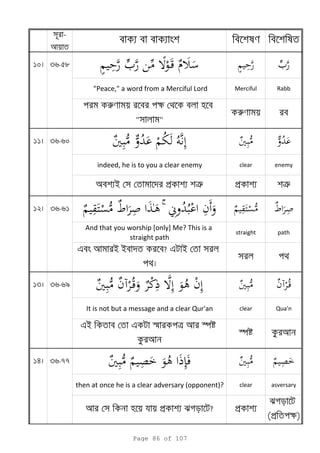 সূরা-
আয়াত
বাক্য বা বাক্যাংশ
বিশেষণ
বিশেষিত
১০। ৩৬-৫৮
سَلَامٌ قَوْلًا مِّن رَّبٍّ رَّحِيمٍ
رَّحِيمٍ
رَّبٍّ
"Peace," a word from a Merciful Lord
Merciful
Rabb
পরম করুণাময় রবের পক্ষ থেকে বলা হবে
"সালাম"
করুণাময়
রব
১১। ৩৬-৬০
إِنَّهُ لَكُمْ عَدُوٌّ مُّبِينٌ
مُّبِينٌ
عَدُوٌّ
indeed, he is to you a clear enemy
clear
enemy
অবশ্যই সে তোমাদের প্রকাশ্য শত্রু
প্রকাশ্য
শত্রু
১২। ৩৬-৬১
وَأَنِ اعْبُدُونِي ۚ هَٰذَا صِرَاطٌ مُّسْتَقِيمٌ
مُّسْتَقِيمٌ
صِرَاطٌ
And that you worship [only] Me? This is a
straight path
straight
path
এবং আমারই ইবাদত করবে? এটাই তো সরল
পথ।
সরল
পথ
১৩। ৩৬-৬৯
إِنْ هُوَ إِلَّا ذِكْرٌ وَقُرْآنٌ مُّبِينٌ
مُّبِينٌ
قُرْآنٌ
It is not but a message and a clear Qur'an
clear
Qua'n
এই কিতাব তো একটা স্মারকপত্র আর স্পষ্ট
কুরআন
স্পষ্ট
কুরআন
১৪। ৩৬-৭৭
فَإِذَا هُوَ خَصِيمٌ مُّبِينٌ
مُّبِينٌ
خَصِيمٌ
then at once he is a clear adversary (opponent)?
clear
asversary
আর সে কিনা হয়ে যায় প্রকাশ্য ঝগড়াটে?
প্রকাশ্য
ঝগড়াটে
(প্রতিপক্ষ)
Page 86 of 107